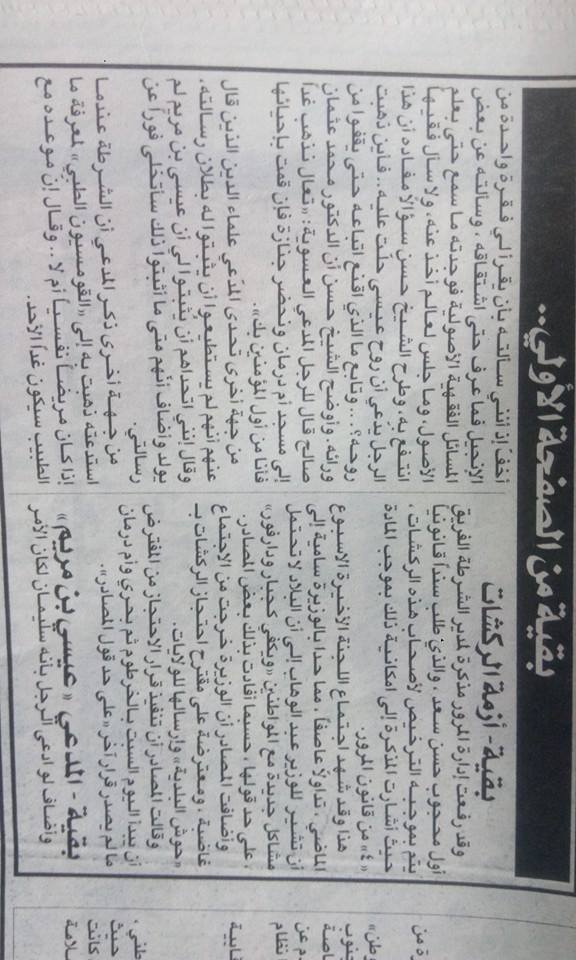 بقية من الصفحة الأولى..
بقية.. أزمة الركشات
وقد رفعت إدارة المرور مذكرة لمدير الشرطة الفريق
أول محجوب حسن سعد، والذي طلب سنداً قانونياً
يتم بموجبه الترخيص لأصحاب هذه الركشات،
حيث أشارت المذكرة إلى امكانية ذلك بموجب المادة
«٤» من قانون المرور.
هذا وقد شهد اجتماع اللجنة الأخيرة الاسبوع
الماضي، تداولاً عاصفاً، مما حدا بالوزيرة سامية إلى
أن تشير للوزير عبد الوهاب إلى أن البلاد لا تحتمل
مشاكل جديدة مع المواطنين «ويكفي كجبار ودارفور»
، على حد قولها، حسبما أفادت بذلك بعض المصادر.
وأضافت المصادر أن الوزيرة خرجت من الاجتماع
غاضبة، ومعترضة على مقترح احتجاز الركشات بـ
«حوش البلدية» وإرسالها للولايات.
وقالت المصادر أن تنفيذ قرار الاحتجاز من المفترض
أن يبدأ اليوم السبت بالخرطوم ثم بحري وأم درمان
ما لم يصدر قرار آخر «على حد قول المصادر».
بقية - المدعي «عيسى بن مريم»
وأضاف لو ادعى الرجل بأنه سليمان لكان الأمر
أخف إذ أنني سألته بأن يقرأ لي فقرة واحدة من
الإنجيل فما عرف حتى اشتقاقه، وسألته عن بعض
المسائل الفقهية الأصولية فوجدته ما سمع حتى بعلم
الأصول، وما جلس لعالم أخذ عنه، ولا سأل فقيهاً
انتفع به، وطرح الشيخ حسن سؤالاً مفاده أن هذا
الرجل يدعي أن روح عيسى حلت عليه.. فأين ذهبت
روحه؟ ... وتابع ما الذي اقنع اتباعه حتى يقفوا من
ورائه، وأوضح الشيخ حسن أن الدكتور محمد عثمان
صالح قال للرجل المدعي العيسوية: «تعال نذهب غداً
إلى مسجد أم درمان ونحضر جنازة فإن قمت بإحيائها
فأنا من أول المؤمنين بك».
من جهة أخرى تحدى المدعي علماء الدين الذين قال
عنهم إنهم لم يستطيعوا أن يثبتوا له بطلان رسالته،
وقال إنني اتحداهم أن يثبتوا لي أن عيسى بن مريم لم
يولد وأضاف أنهم متى ما أثبتوا ذلك سأتخلى فوراً عن
رسالتي.
من جهة أخرى ذكر المدعي أن الشرطة عندما
استدعته ذهبت به إلى «القومسيون الطبي» لمعرفة ما
إذا كان مريضاً نفسياً أم لا.. وقال إن موعده مع
الطبيب سيكون غداً الأحد.